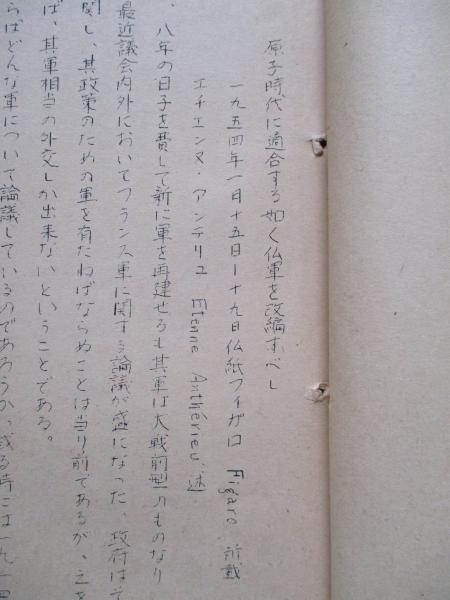 原子時代に適合する如く仏軍を改編すべし
一九五四年一月十五日－十九日仏紙フィガロ Figaro 所載
エチエンヌ・アンテリユ Etenne Anthérieu 述
、八年の日子を費して新に軍を再建せるも其軍は大戦前型のものなり
最近議会内外においてフランス軍に関する論議が盛になった、政府はそ
関し、其政策のための軍を有たねばならぬことは当り前であるが、之を
ば、其軍相当の外交しか出来ないということである。
らばどんな軍について論議しているのであろうか、或る時には一九一四